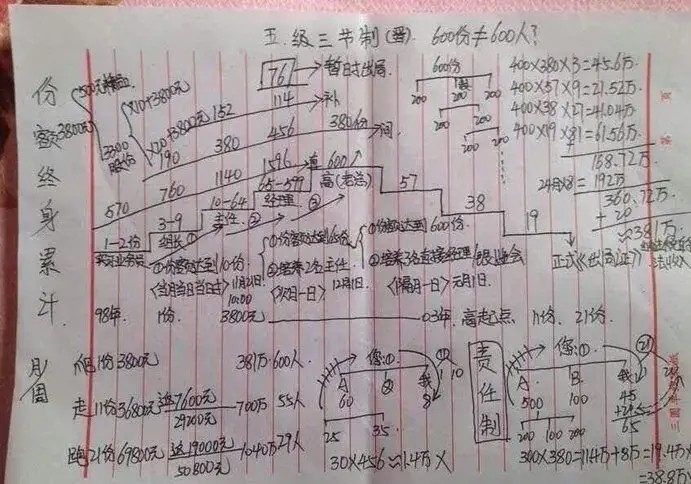 五级三节制(晋). 600份≠600人?
份额终身累计
500元
3800元
3300
股份
×10+3800元
×20+3800元
76→暂时出局
152 114→补
190 380 456 380份→间
570 760 1140 1596→直 600
1-2份
3-9
组长①
10-64
主任②
65-599
经理③
高(老总)
57
38
19
正式《出局证》
①份额达到10份
<当月当日当时> 11月21日
10:00
①份额达到65份
②培养2名主任
<次月一日> 12月1日
①份额达到600份
②培养3名直接经理
<隔月一日> 元月1日
600份
200 200 200
200 200
200 200
400×380×3=45.6万
400×57×9=21.52万
400×38×27=41.04万
400×19×81=61.56万
168.72万
24月×8=192万
360.72万
+20
≈381万
98年. 1份. 3800元
03年. 高起点 11份. 21份.
1份3800元 381万·600人
走11份36800元 送7600元 700万 55人
29200元
跑21份69800元 送19000元 1040万 29人
50800元
您:①
A
60
②
我
8
10
25 35
30×456≈1.4万×
责任制
您:①
A
500
B
100
我
45
65
200 100 200
300×380=11.4万+8万=19.4万×
=38.8万×